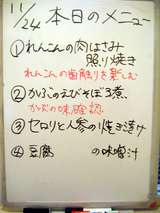 11/24 本日のメニュー
① れんこんの肉はさみ
照り焼き
れんこんの歯触りを楽しむ
② かぶのえびそぼろ煮
かぶの味確認
③ セロリと人参の浅漬け
④ 豆腐 の味噌汁